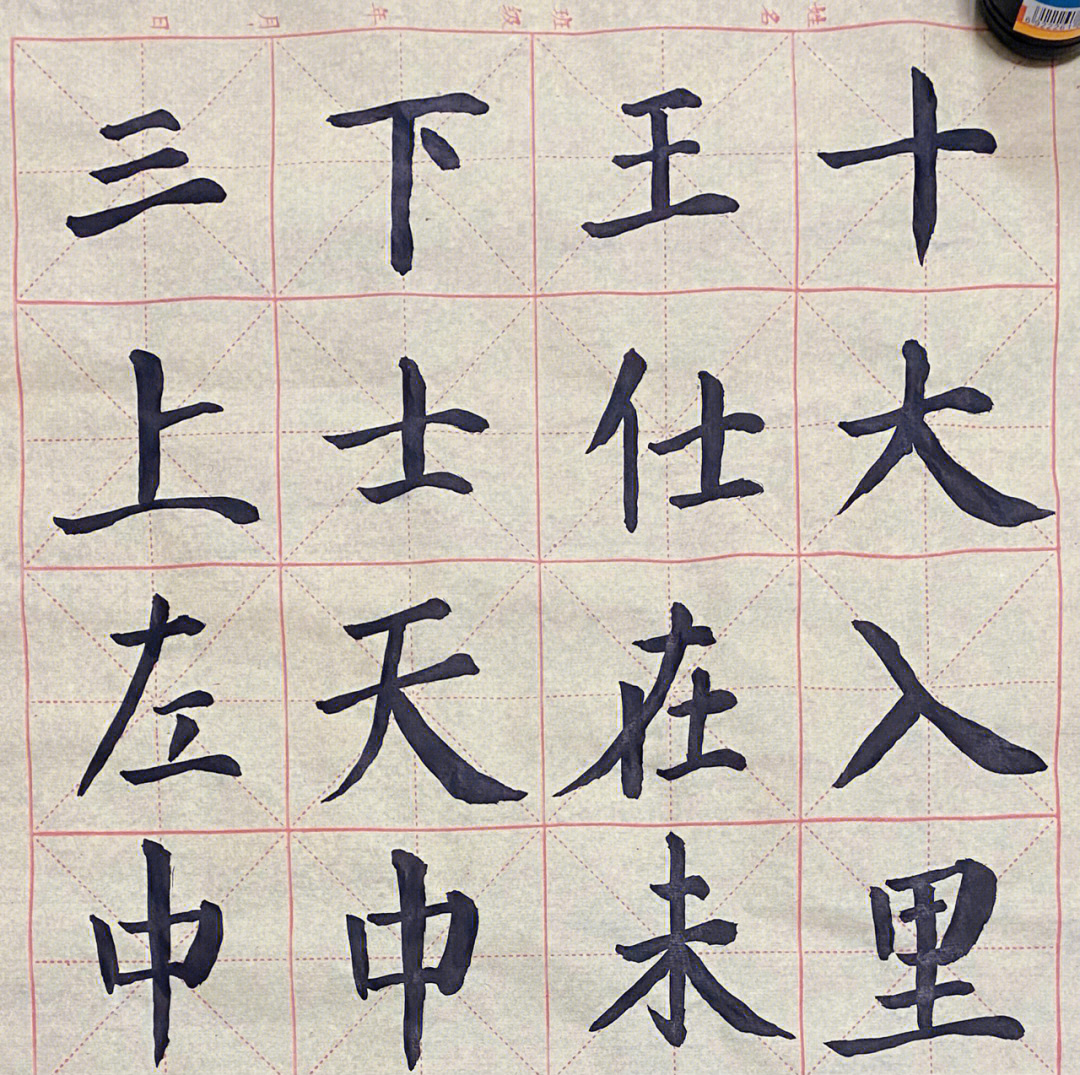 姓名 班级 年 月 日
三下王十
上士仕大
左天在入
中中未里